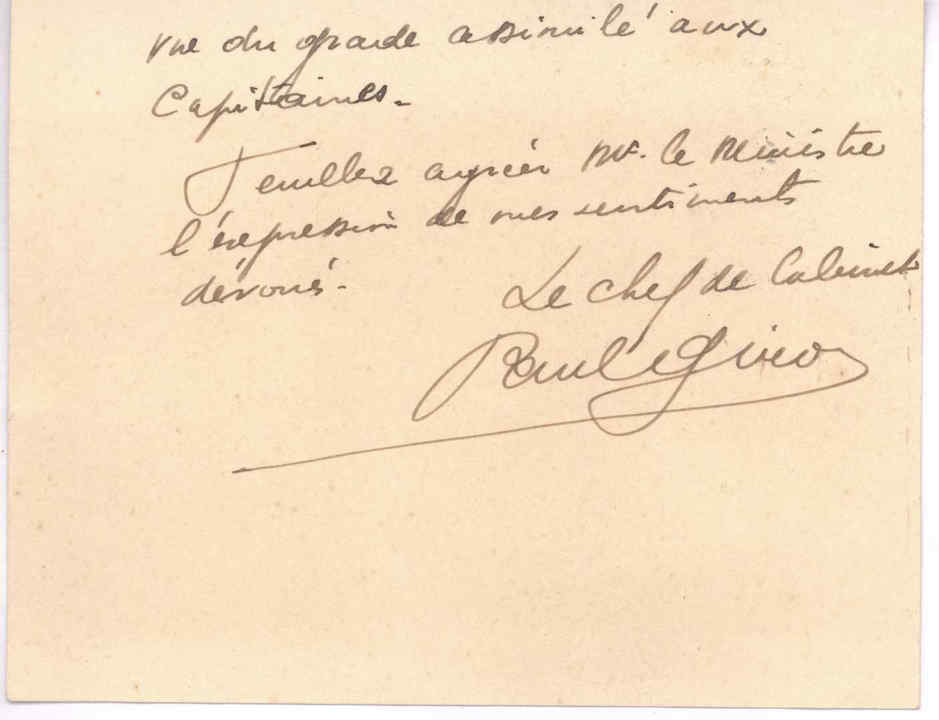 vue du grade assimilé aux
Capitaines.
Veuillez agréer Mr. le Ministre
l'expression de mes sentiments
dévoués.
Le chef de Cabinet
Paul